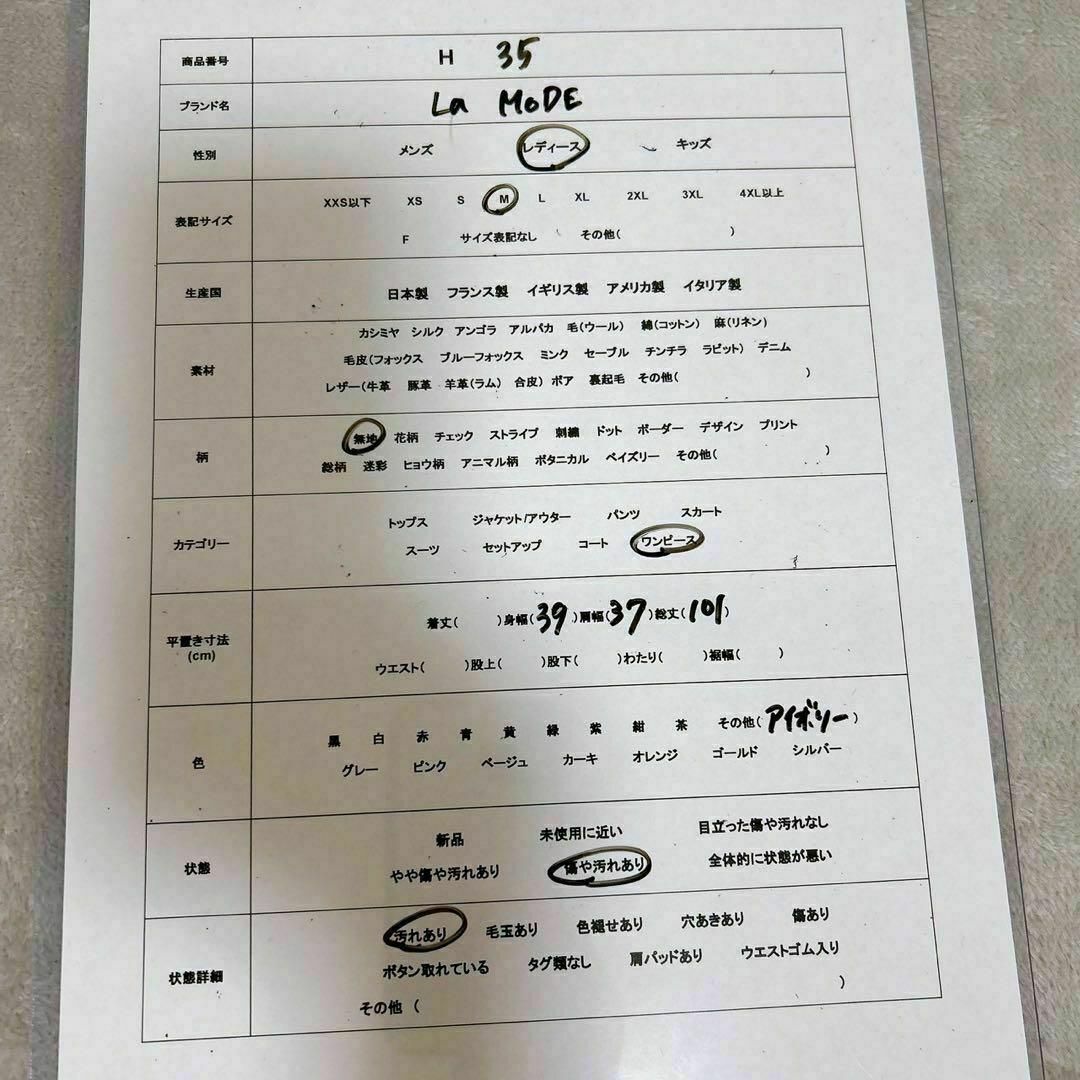 商品番号 H 35
ブランド名 La MoDE
性別 メンズ レディース キッズ
表記サイズ XXS以下 XS S M L XL 2XL 3XL 4XL以上
F サイズ表記なし その他( )
生産国 日本製 フランス製 イギリス製 アメリカ製 イタリア製
素材 カシミヤ シルク アンゴラ アルパカ 毛(ウール) 綿(コットン) 麻(リネン)
毛皮(フォックス ブルーフォックス ミンク セーブル チンチラ ラビット) デニム
レザー(牛革 豚革 羊革(ラム) 合皮) ボア 裏起毛 その他( )
柄 無地 花柄 チェック ストライプ 刺繍 ドット ボーダー デザイン プリント
総柄 迷彩 ヒョウ柄 アニマル柄 ボタニカル ペイズリー その他( )
カテゴリー トップス ジャケット/アウター パンツ スカート
スーツ セットアップ コート ワンピース
平置き寸法 (cm) 着丈( )身幅(39)肩幅(37)総丈(101)
ウエスト( )股上( )股下( )わたり( )裾幅( )
色 黒 白 赤 青 黄 緑 紫 紺 茶 その他(アイボリー)
グレー ピンク ベージュ カーキ オレンジ ゴールド シルバー
状態 新品 未使用に近い 目立った傷や汚れなし
やや傷や汚れあり 傷や汚れあり 全体的に状態が悪い
状態詳細 汚れあり 毛玉あり 色褪せあり 穴あきあり 傷あり
ボタン取れている タグ類なし 肩パッドあり ウエストゴム入り
その他 ( )